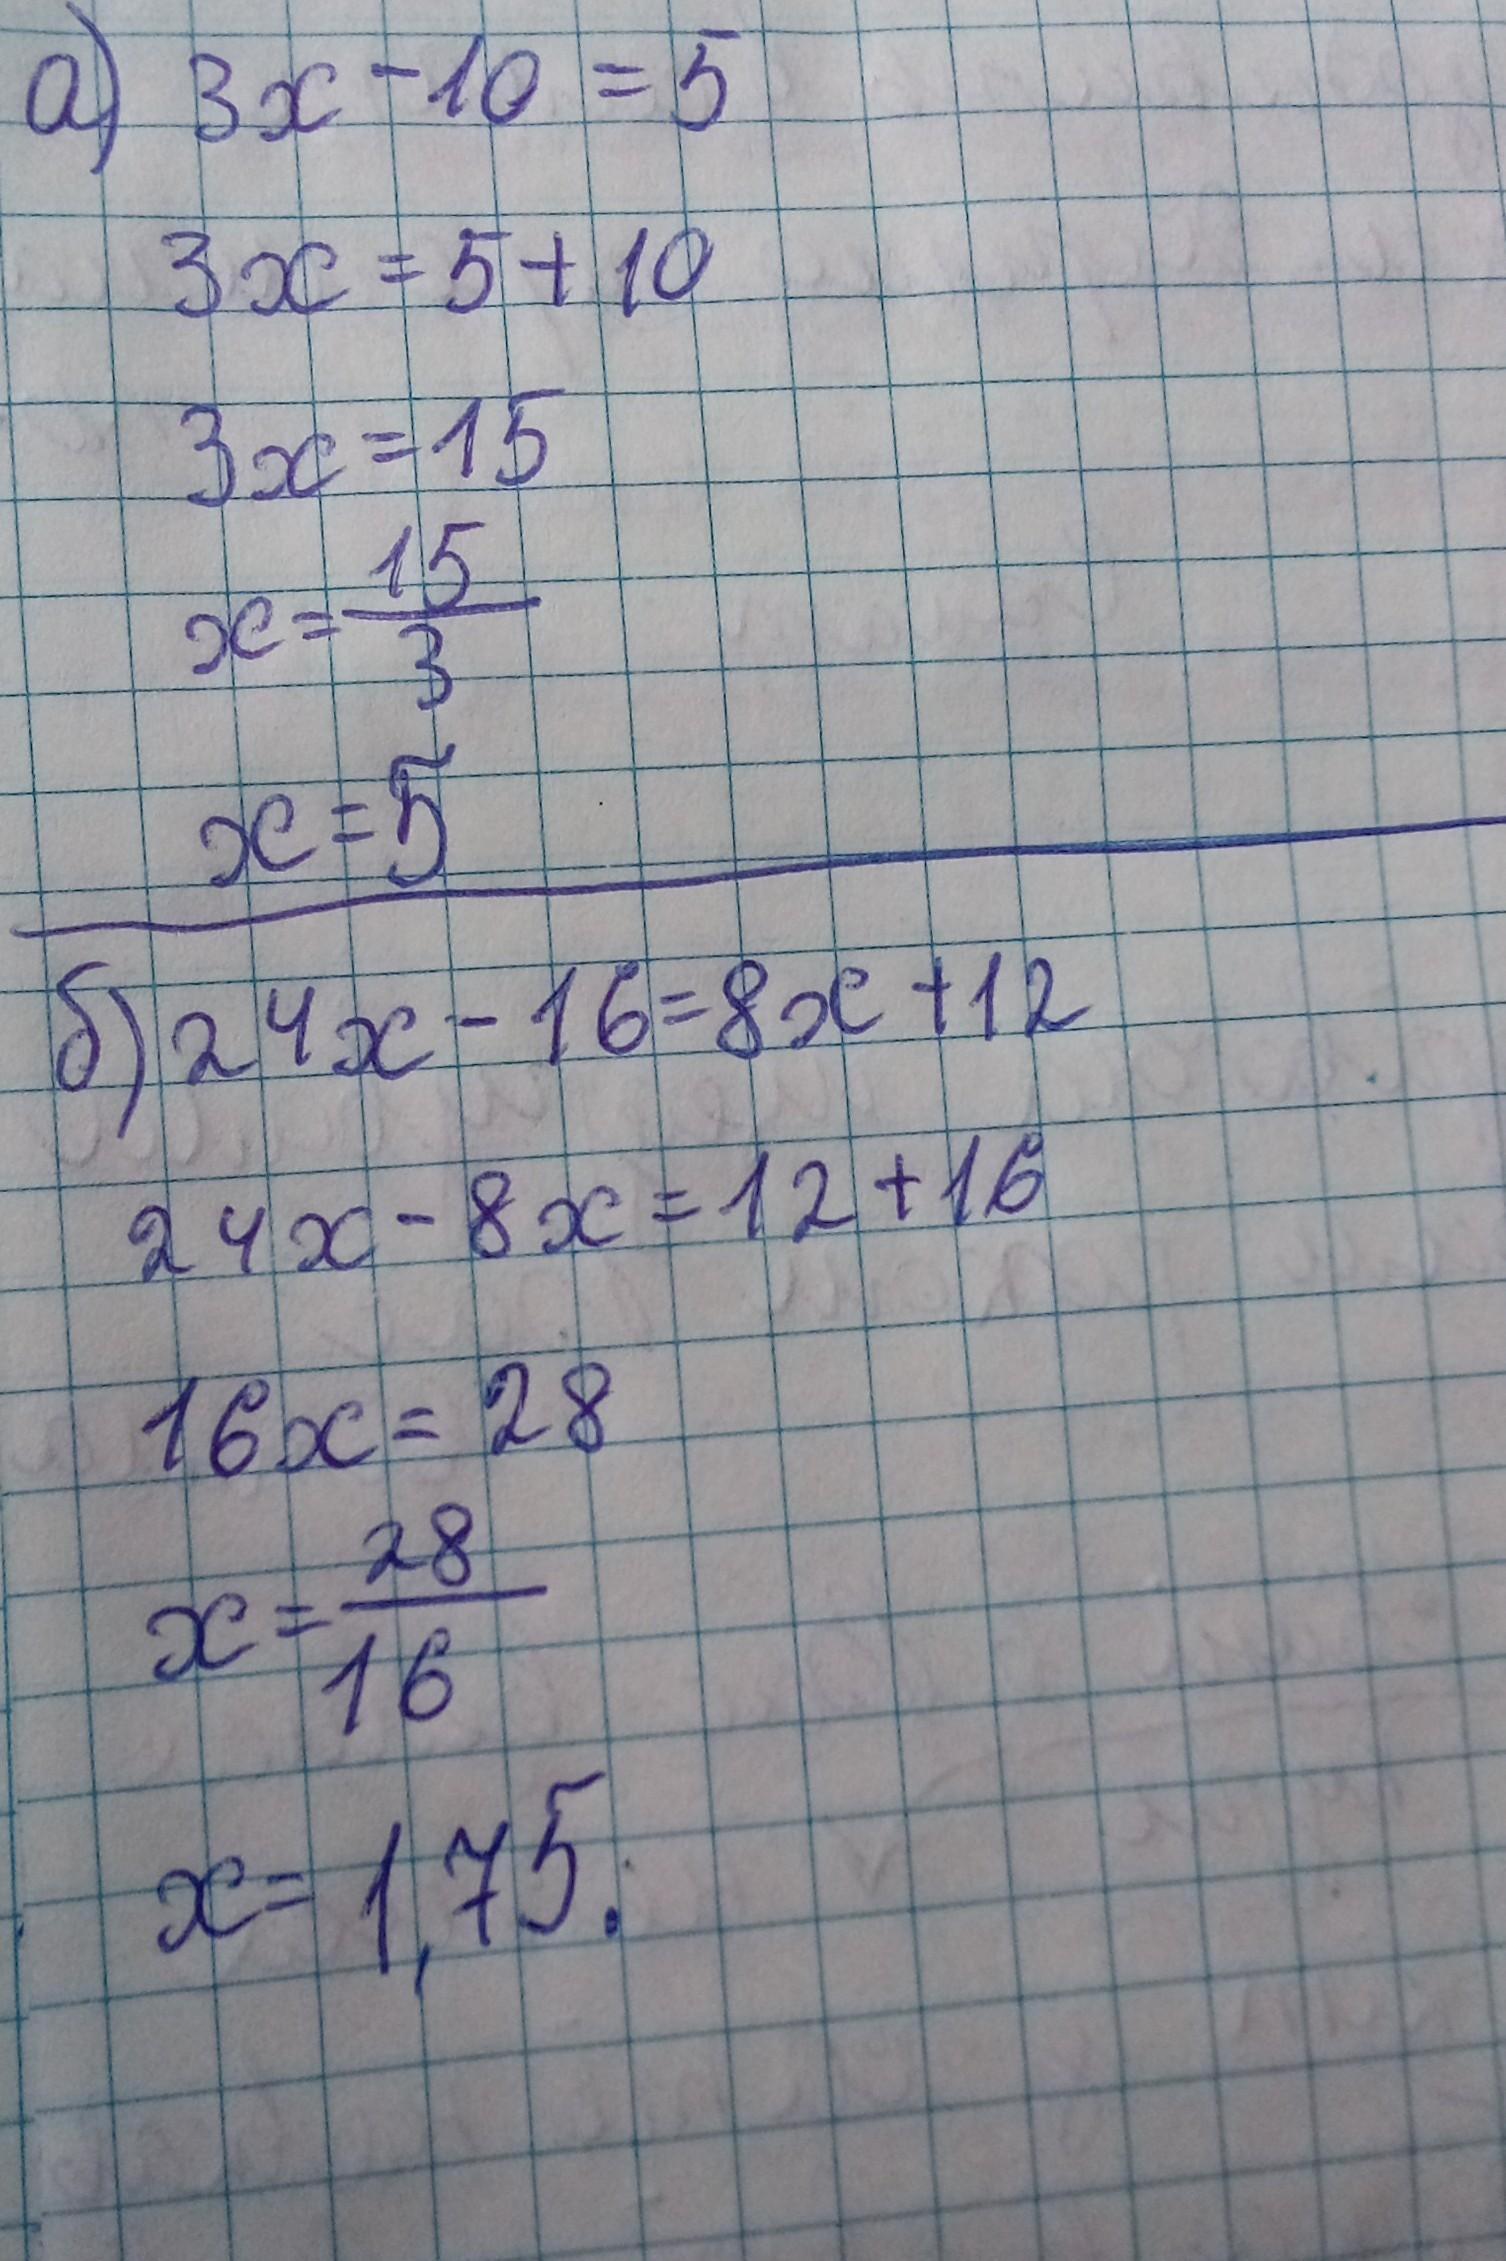 а) 3x - 10 = 5
3x = 5 + 10
3x = 15
x = 15/3
x = 5
б) 24x - 16 = 8x + 12
24x - 8x = 12 + 16
16x = 28
x = 28/16
x = 1,75.